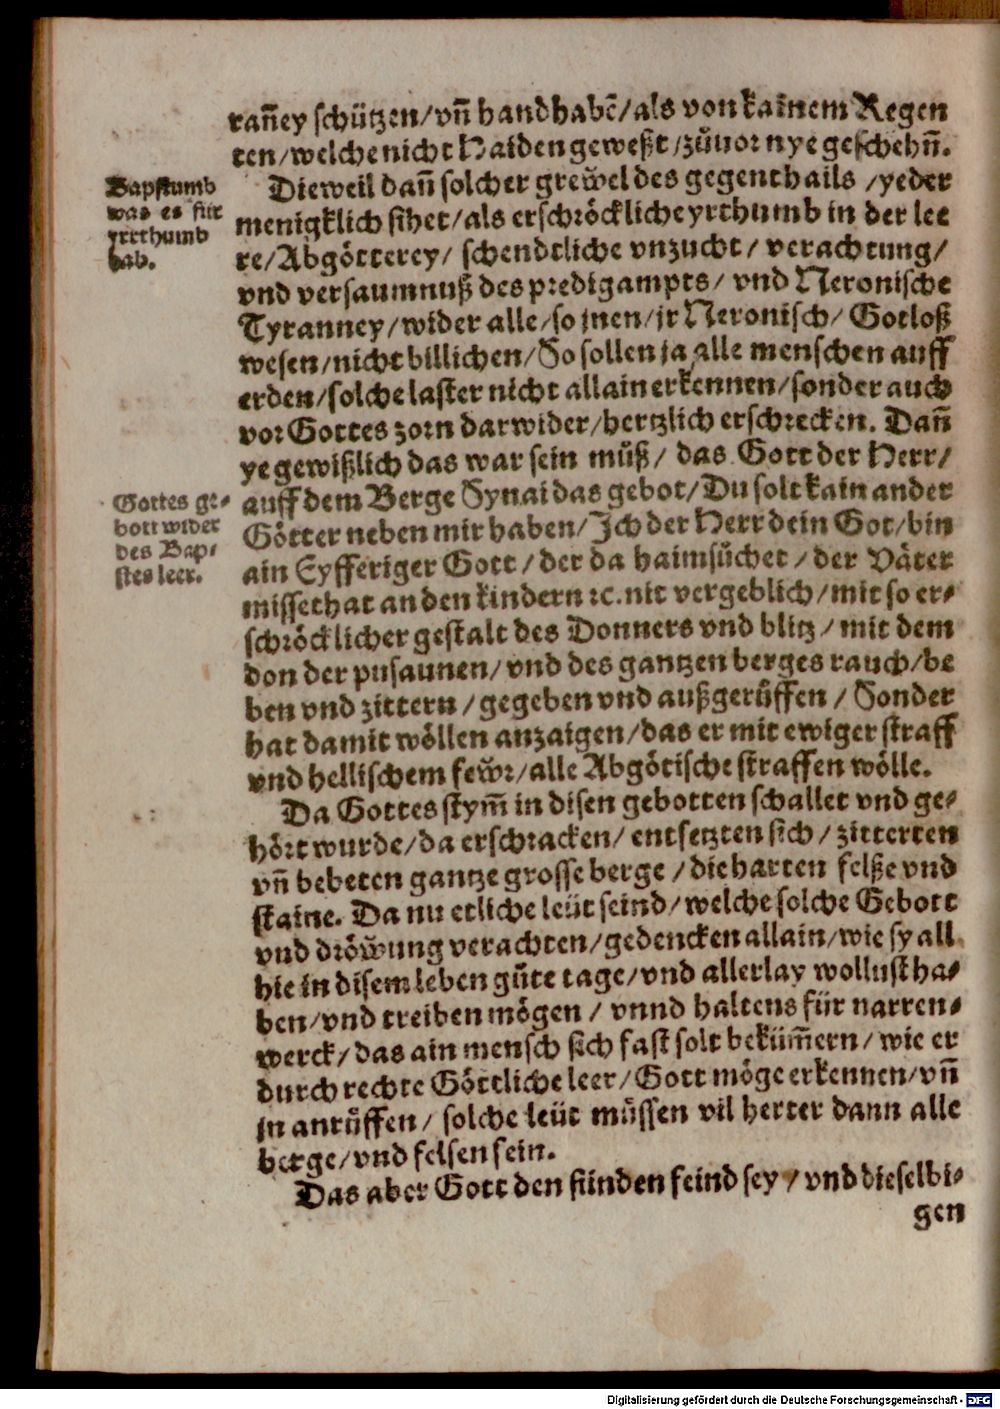 rañey schützen/vñ handhabē/als von kainem Regen
ten/welche nicht Haiden geweßt/zůuor nye geschehñ.
Bapstumb
was es für
yrrthumb
hab.
Dieweil dañ solcher grewel des gegenthails /yeder
menigklich sihet/als erschröckliche yrthumb in der lee
re/Abgötterey/ schendtliche vnzucht/ verachtung/
vnd versaumnuß des predigampts/ vnd Neronische
Tyranney/wider alle/so jnen/jr Neronisch/ Gotloß
wesen/nicht billichen/So sollen ja alle menschen auff
erden/solche laster nicht allain erkennen/sonder auch
vor Gottes zorn darwider/hertzlich erschrecken. Dañ
ye gewißlich das war sein můß/ das Gott der Herr/
Gottes ge-
bott wider
des Bap-
stes leer.
auff dem Berge Synai das gebot/Du solt kain ander
Götter neben mir haben/Ich der Herr dein Got/bin
ain Eyfferiger Gott/der da haimsůchet/der Väter
missethat an den kindern ꝛc. nit vergeblich/mit so er-
schröcklicher gestalt des Donners vnd blitz/mit dem
don der pusaunen/vnd des gantzen berges rauch/be
ben vnd zittern/gegeben vnd außgerůffen/ Sonder
hat damit wöllen anzaigen/das er mit ewiger straff
vnd hellischem fewr/alle Abgötische straffen wölle.
Da Gottes stym̄ in disen gebotten schallet vnd ge-
hört wurde/da erschracken/ entsetzten sich/ zitterten
vñ bebeten gantze grosse berge/die harten felße vnd
staine. Da nu etliche leüt seind/welche solche Gebott
vnd dröwung verachten/gedencken allain/wie sy all
hie in disem leben gůte tage/vnd allerlay wollust ha-
ben/vnd treiben mögen/ vnnd haltens für narren-
werck/das ain mensch sich fast solt beküm̄ern/wie er
durch rechte Göttliche leer/Gott möge erkennen/vñ
jn anrůffen/ solche leüt müssen vil herter dann alle
berge/vnd felsen sein.
Das aber Gott den sünden feind sey/vnd dieselbi-
gen
Digitalisierung gefördert durch die Deutsche Forschungsgemeinschaft - DFG